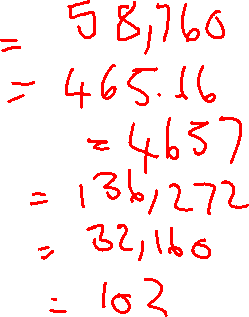 = 58,760
= 465.16
= 4657
= 136,272
= 32,160
= 102